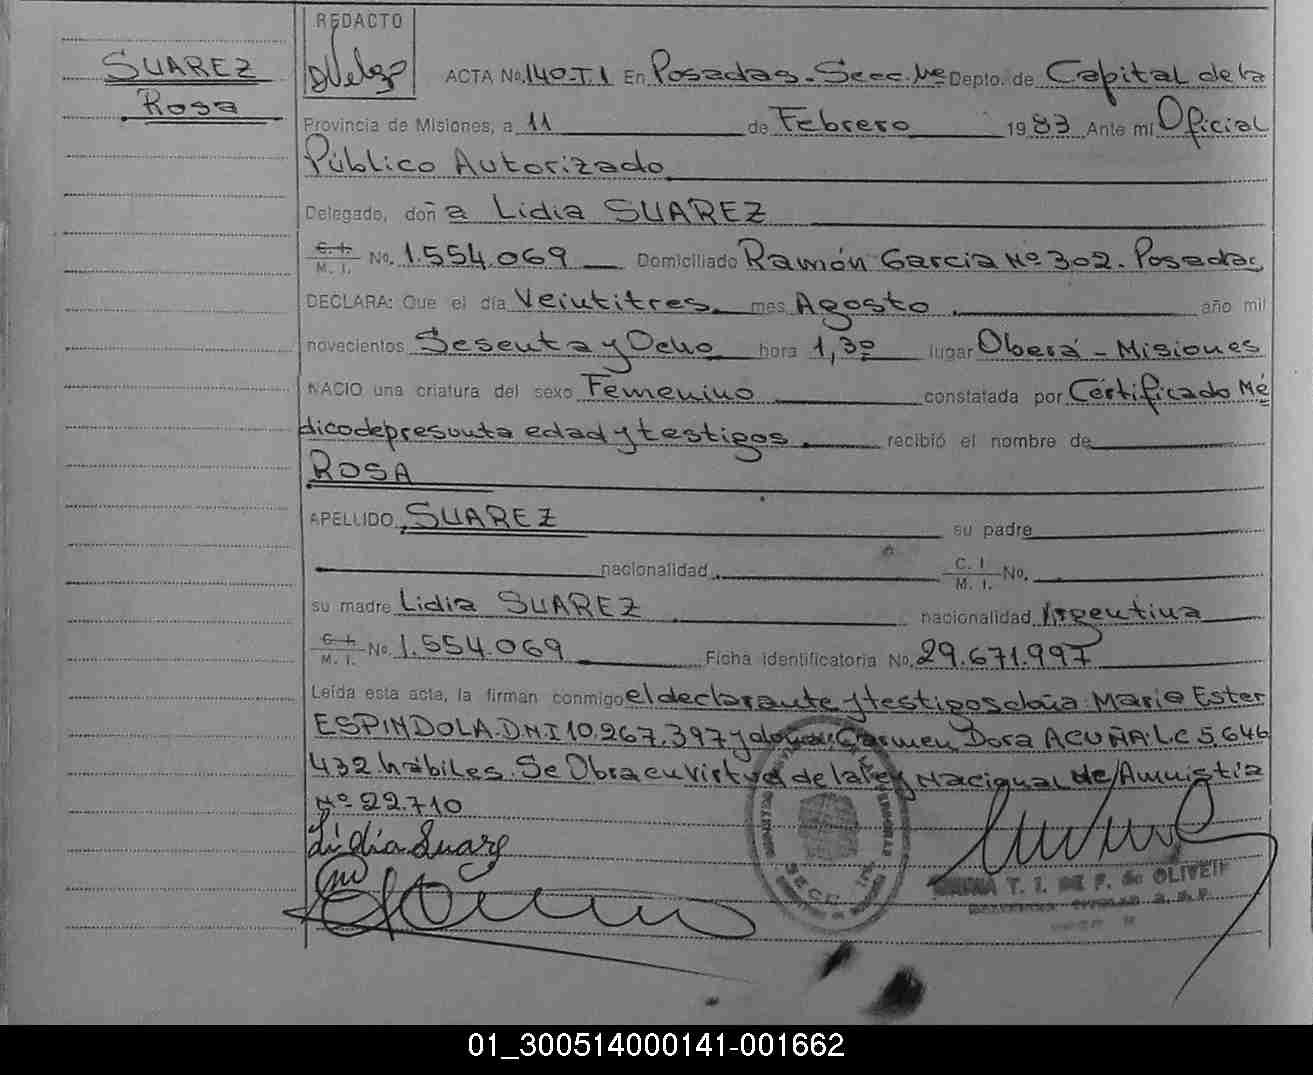 REDACTO
SUAREZ
Rosa
ACTA No. 140-T.1 En Posadas-Secc. 1ra Depto. de Capital de la
Provincia de Misiones, a 11 de Febrero 1983 Ante mi Oficial
Público Autorizado
Delegado, doña Lidia SUAREZ
C. I. M. I. No. 1.554.069 Domiciliado Ramón Garcia Nº 302. Posadas
DECLARA: Que el día Veintitres mes Agosto año mil
novecientos Sesenta y Ocho hora 1,30 lugar Oberá - Misiones
NACIO una criatura del sexo Femenino constatada por Certificado Mé
dico de presunta edad y testigos recibió el nombre de
ROSA
APELLIDO SUAREZ su padre
nacionalidad C. I M. I. No.
su madre Lidia SUAREZ nacionalidad Argentina
C. I. M. I. No. 1.554.069 Ficha identificatoria No. 29.671.997
Leída esta acta, la firman conmigo el declarante y testigos doña: Maria Ester
ESPINDOLA. DNI 10.267.397 y doña: Carmen Dora ACUÑA. LC 5.646
432 hábiles. Se Obra en virtud de la ley Nacional de Amnistia
Nº 22.710
Lidia Suarez
T. I. DE F. de OLIVEIR
01_300514000141-001662